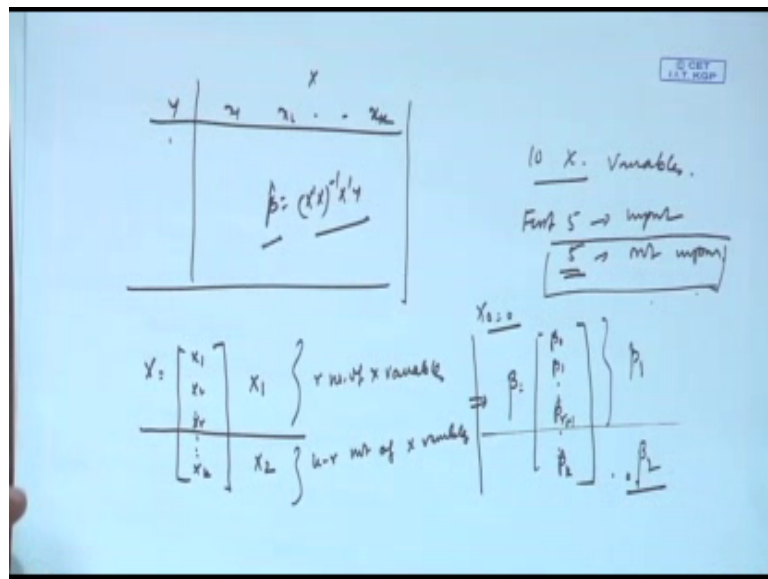 © CET
I.I.T. KGP
X
Y x₁ x₂ . . xₖ
β̂ = (X'X)⁻¹X'Y
10 X. Variables.
First 5 →
5 → not
X₀ = 0
X = [x₁ x₂ xᵣ ⋮ xₖ]
X₁ } r no. of x variables
X₂ } k-r no of x variables
⇒ β = [β₀ β₁ . βᵣ₋₁ ⋮ βₖ]
} β₁
.. β₂